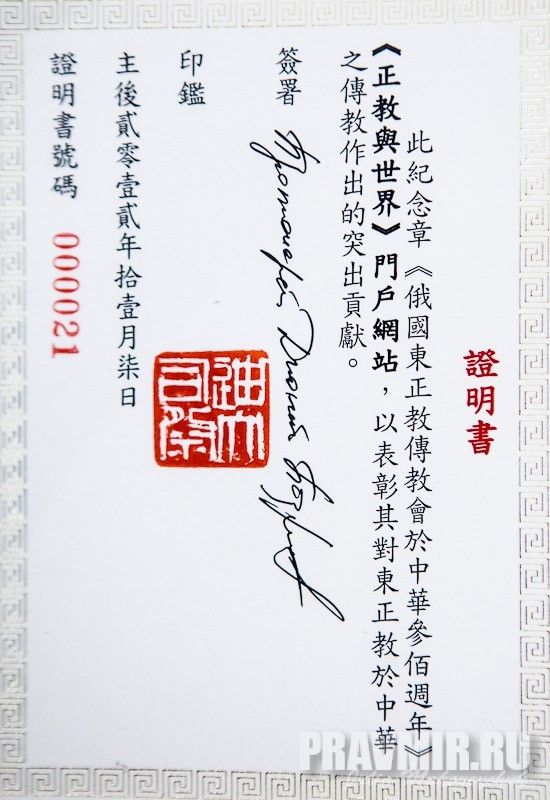 證明書
此紀念章《俄國東正教傳教會於中華參佰週年》
《正教與世界》門戶網站，以表彰其對東正教於中華
之傳教作出的突出貢獻。
簽署
Протоиерей Дионисий Поздняев
印鑑
主後貳零壹貳年拾壹月柒日
證明書號碼 000021
PRAVMIR.RU